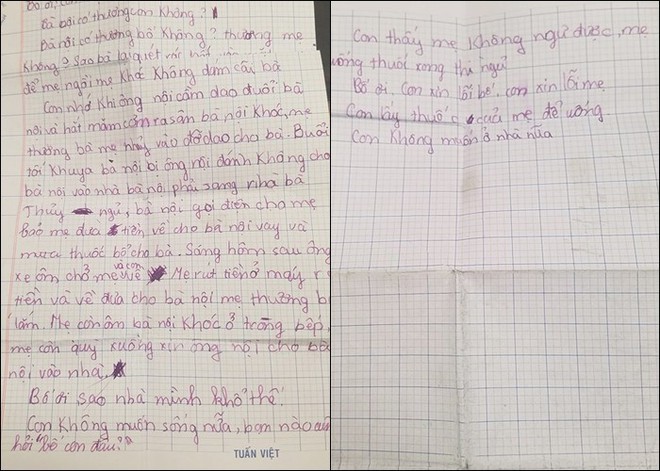 Bố ơi,
Bà nội có thương con không?
Bà nội có thương bố không? thương mẹ
không? Sao bà lại giết
để mẹ ngồi mẹ khóc không dám cãi bà
Con nhớ khi ông nội cầm dao đuổi bà
nội và hắt mâm cơm ra sân bà nội khóc, mẹ
thương bà mẹ nhảy vào đỡ dao cho bà. Buổi
tối khuya bà nội bị ông nội đánh không cho
bà nội vào nhà bà nội phải sang nhà bà
Thủy ngủ, bà nội gọi điện cho mẹ
bảo mẹ đưa tiền về cho bà nội vay và
mua thuốc bổ cho bà. Sáng hôm sau ông
xe ôm chở mẹ và con về Mẹ rut tiền ở máy r
tiền và về đưa cho bà nội mẹ thương b
lắm. Mẹ còn ôm bà nội khóc ở trong bếp,
mẹ còn quỳ xuống xin ông nội cho bà
nội vào nhà.
Bố ơi sao nhà mình khổ thế.
Con không muốn sống nữa, bạn nào cũn
hỏi "bố con đâu?"
TUẤN VIỆT
Con thấy mẹ không ngủ được, mẹ
uống thuốc xong thì ngủ
Bố ơi. Con xin lỗi bố, con xin lỗi mẹ
Con lấy thuốc của mẹ để uống
Con không muốn ở nhà nữa